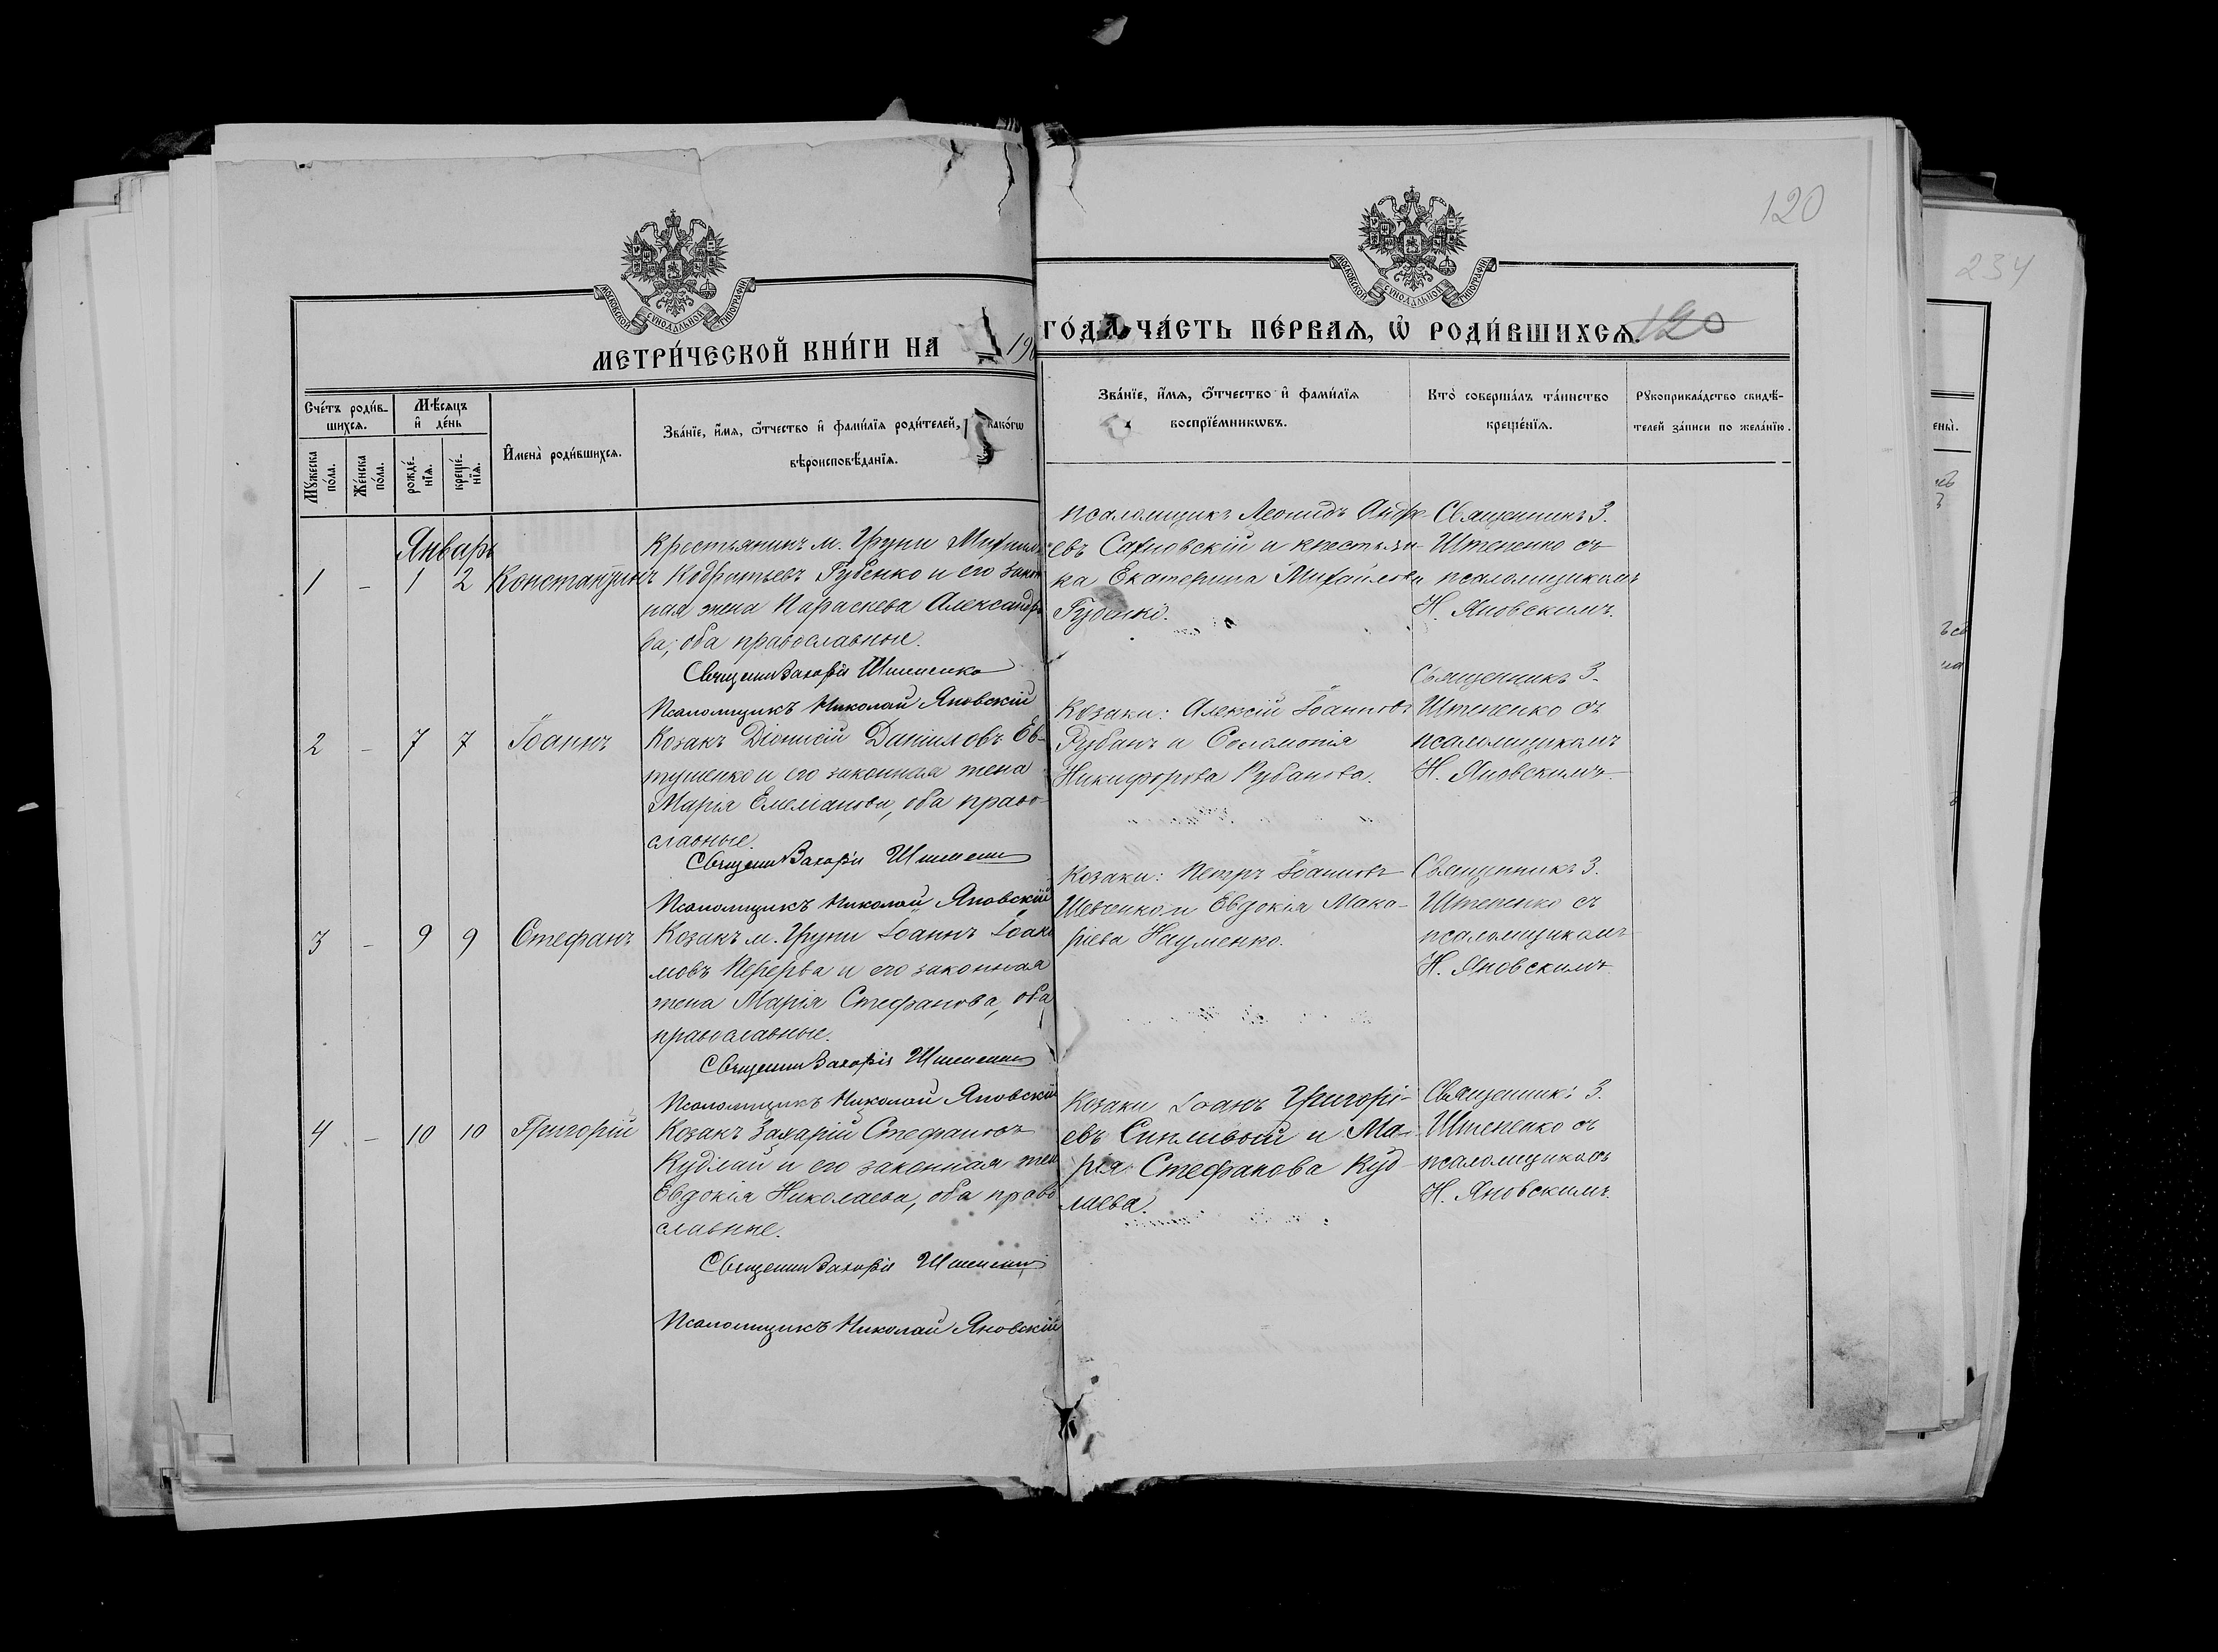 120
234
МОСКОВСКОЙ СѴНОДАЛЬНОЙ ТИПОГРАФІИ
МОСКОВСКОЙ СѴНОДАЛЬНОЙ ТИПОГРАФІИ
МЕТРИ́ЧЕСКОЙ КНИ́ГИ НА 190
ГО́ДА ЧА́СТЬ ПЕ́РВАѦ, Ѡ҆ РОДИ́ВШИХСѦ. 120
Сче́тъ роди́в-
шихсѧ.
Мѣ́сѧцъ
и҆ де́нь
Мꙋ́жеска
по́ла.
Же́нска
по́ла.
рожде́-
нїѧ.
креще́-
нїѧ.
И҆мена̀ роди́вшихсѧ.
Зва́нїе, и҆́мѧ, ѻ҆́тчество и҆ фами́лїѧ роди́телей, како́гѡ
вѣроисповѣ́данїѧ.
Зва́нїе, и҆́мѧ, ѻ҆́тчество и҆ фами́лїѧ
воспрїе́мникѡвъ.
Кто̀ соверша́лъ та́инство
креще́нїѧ.
Рꙋкоприкла́дство свидѣ́-
телей за́писи по жела́нїю.
Январь
1 - 1 2 Константинъ
Крестьянинъ м. Груни Михаилъ
Кодратьевъ Губенко и его закон
ная жена Параскева Александро
ва, оба православные.
Священ Захарій Штепенко
Псаломщикъ Николай Яновскій
псаломщикъ Леонидъ Андре-
евъ Сахновскій и крестьян-
ка Екатерина Михайлова
Священникъ З.
Штепенко съ
псаломщикомъ
Н. Яновскимъ.
2 - 7 7 Іоаннъ
Козакъ Діонисій Даніиловъ Ев-
тушенко и его законная жена
Марія Емеліанова, оба право-
славные.
Священ Захарій Штепенко
Псаломщикъ Николай Яновскій
Козаки: Алексій Іоанновъ
Рубанъ и Соломонія
Никифорова Рубанова.
Священникъ З.
Штепенко съ
псаломщикомъ
Н. Яновскимъ.
3 - 9 9 Стефанъ
Козакъ м. Груни Іоаннъ Іоаки
мовъ Перерва и его законная
жена Марія Стефанова, оба
православные.
Священ Захарій Штепенко
Псаломщикъ Николай Яновскій
Козаки: Петръ Іоанновъ
Шевченко и Евдокія Мака-
ріева Науменко.
Священникъ З.
Штепенко съ
псаломщикомъ
Н. Яновскимъ.
4 - 10 10 Григорій
Козакъ Захарій Стефановъ
Кудлай и его законная жен
Евдокія Николаева, оба право
славные.
Священ Захарій Штепенко
Псаломщикъ Николай Яновскій
Козаки Іоанъ Григорі-
евъ Сипливый и Ма-
рія Стефанова Куд-
лаева.
Священникъ З.
Штепенко съ
псаломщикомъ
Н. Яновскимъ.